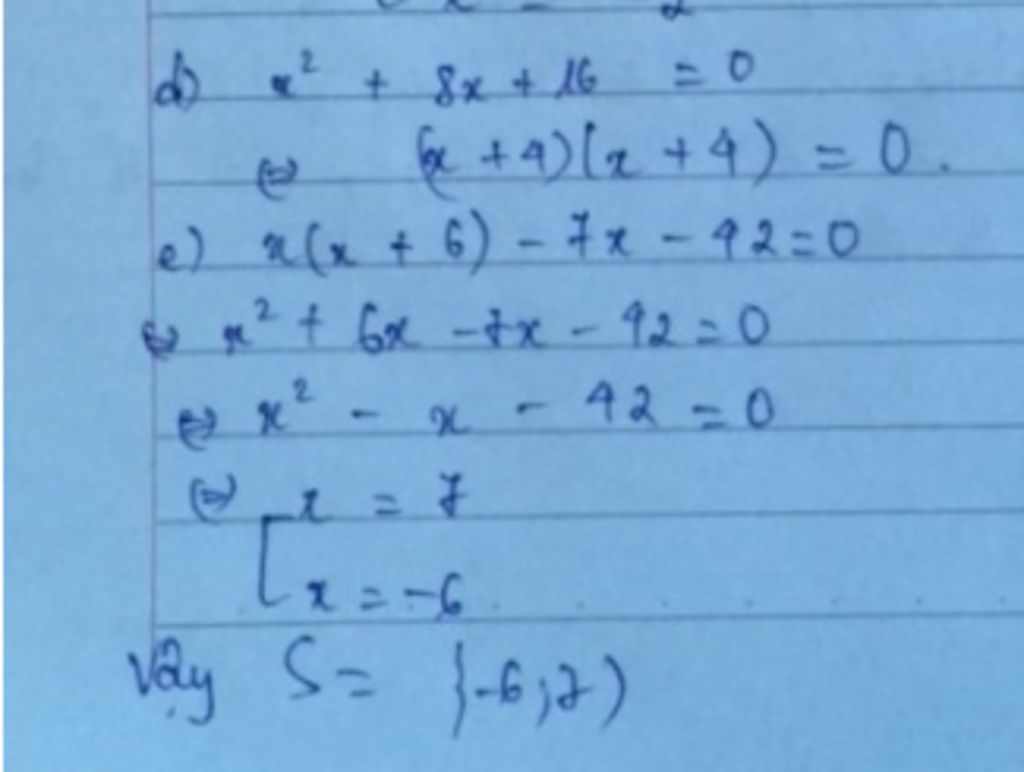 d) x² + 8x + 16 = 0
⇔ (x + 4)(x + 4) = 0.
e) x(x + 6) - 7x - 42 = 0
⇔ x² + 6x - 7x - 42 = 0
⇔ x² - x - 42 = 0
⇔ [ x = 7
x = -6
Vậy S = {-6; 7}